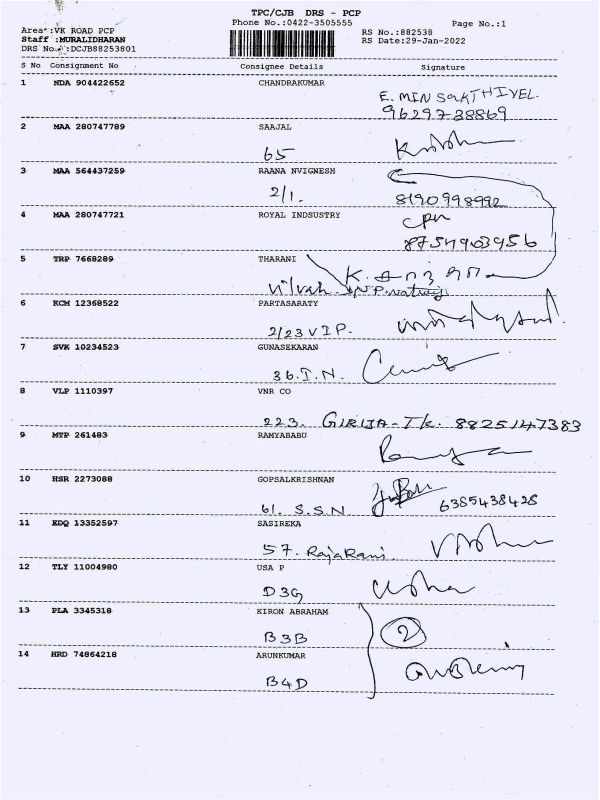 TPC/CJB DRS - PCP
Phone No.:0422-3505555
Page No.:1
Area :VK ROAD PCP
Staff :MURALIDHARAN
DRS No.:DCJB88253801
RS No.:882538
RS Date:29-Jan-2022
S No Consignment No Consignee Details Signature
1 NDA 904422652 CHANDRAKUMAR
E. MIN SAKTHIVEL.
9629738869
2 MAA 280747789 SAAJAL
65
3 MAA 564437259 RAANA NVIGNESH
2/1. 8190998992
4 MAA 280747721 ROYAL INDSUSTRY
8754903956
5 TRP 7668289 THARANI
6 KCM 12368522 PARTASARATY
2/23 V I P.
7 SVK 10234523 GUNASEKARAN
36. I. N.
8 VLP 1110397 VNR CO
223. GIRIJA-Tk. 8825147383
9 MTP 261483 RAMYABABU
10 HSR 2273088 GOPSALKRISHNAN
61. S. S. N 6385438428
11 KDQ 13352597 SASIREKA
57. RajaRani.
12 TLY 11004980 USA P
D3G Usha
13 PLA 3345318 KIRON ABRAHAM
B3B 2
14 HRD 74864218 ARUNKUMAR
B4D